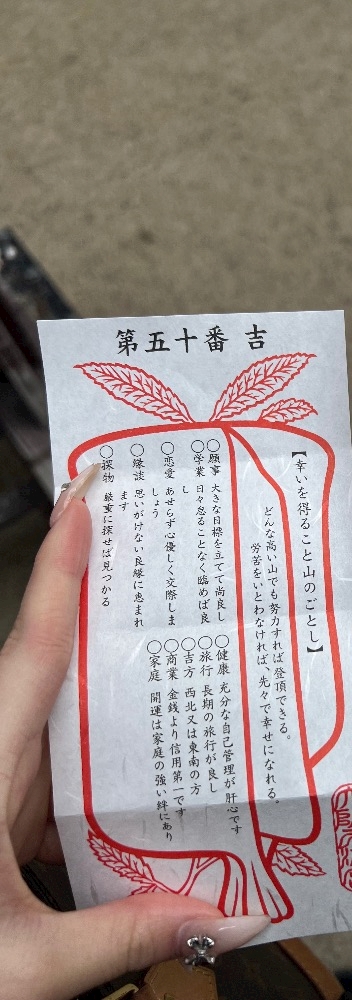 第五十番 吉
【幸いを得ること山のごとし】
どんな高い山でも努力すれば登頂できる。
労苦をいとわなければ、先々で幸せになれる。
○願事 大きな目標を立てて尚良し
○学業 日々怠ることなく臨めば良
し
○恋愛 あせらず心優しく交際しま
しょう
○縁談 思いがけない良縁に恵まれ
ます
○探物 厳重に探せば見つかる
○健康 充分な自己管理が肝心です
○旅行 長期の旅行が良し
○吉方 西北又は東南の方
○商業 金銭より信用第一です
○家庭 開運は家庭の強い絆にあり